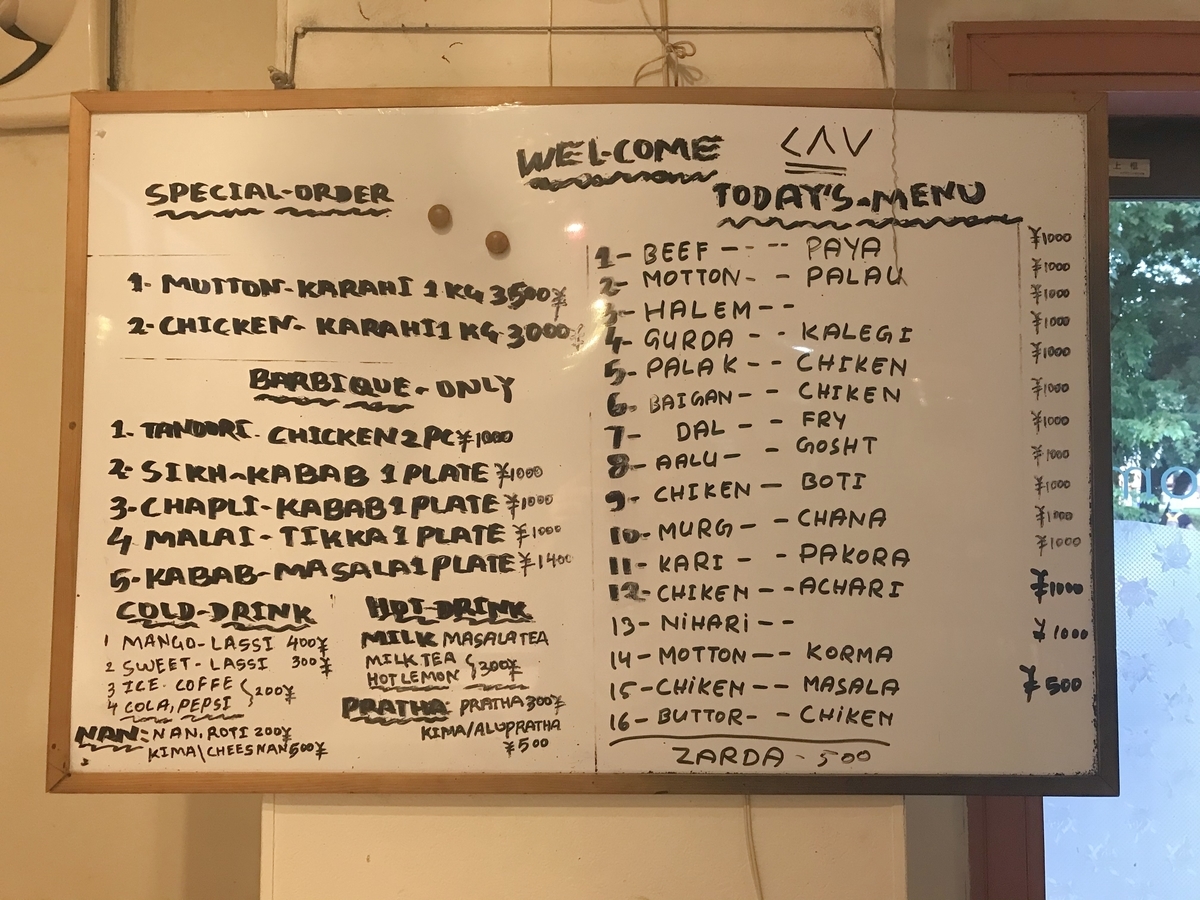 WELCOME
SPECIAL-ORDER
1- MUTTON-KARAHI 1 KG 3500¥
2-CHICKEN- KARAHI1 KG 3000¥
BARBIQUE- ONLY
1- TANDORI- CHICKEN 2 PC ¥1000
2- SIKH-KABAB 1 PLATE ¥1000
3-CHAPLI-KABAB1 PLATE ¥1000
4 MALAI-TIKKA 1 PLATE ¥1000
5-KABAB-MASALA1 PLATE ¥1400
COLD-DRINK
1 MANGO-LASSI 400¥
2 SWEET-LASSI 300¥
3 ICE-COFFE
4 COLA, PEPSI 200¥
NAN: NAN, ROTI 200¥
KIMA\CHEESNAN 500¥
HOT-DRINK
MILK MASALATEA
MILK TEA
HOT LEMON 300¥
PRATHA: PRATHA 300¥
KIMA/ALUPRATHA
¥500
TODAY'S-MENU
1- BEEF ---- PAYA ¥1000
2- MOTTON- - PALAU ¥1000
3- HALEM-- ¥1000
4- GURDA - - KALEGI ¥1000
5- PALAK - - CHIKEN ¥1000
6- BAIGAN - - CHIKEN ¥1000
7- DAL - - FRY ¥1000
8- AALU- - GOSHT ¥1000
9- CHIKEN - BOTI ¥1000
10- MURG- - CHANA ¥1000
11- KARI - - PAKORA ¥1000
12- CHIKEN--ACHARI ¥1000
13- NiHARi-- ¥1000
14-MOTTON-- KORMA ¥500
15-CHiKEN-- MASALA
16-BUTTOR- - CHiKEN
ZARDA - 500